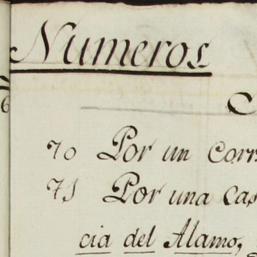 Numeros
6
C
70 Por un Corr
71 Por una Cas
cia del Alamo,